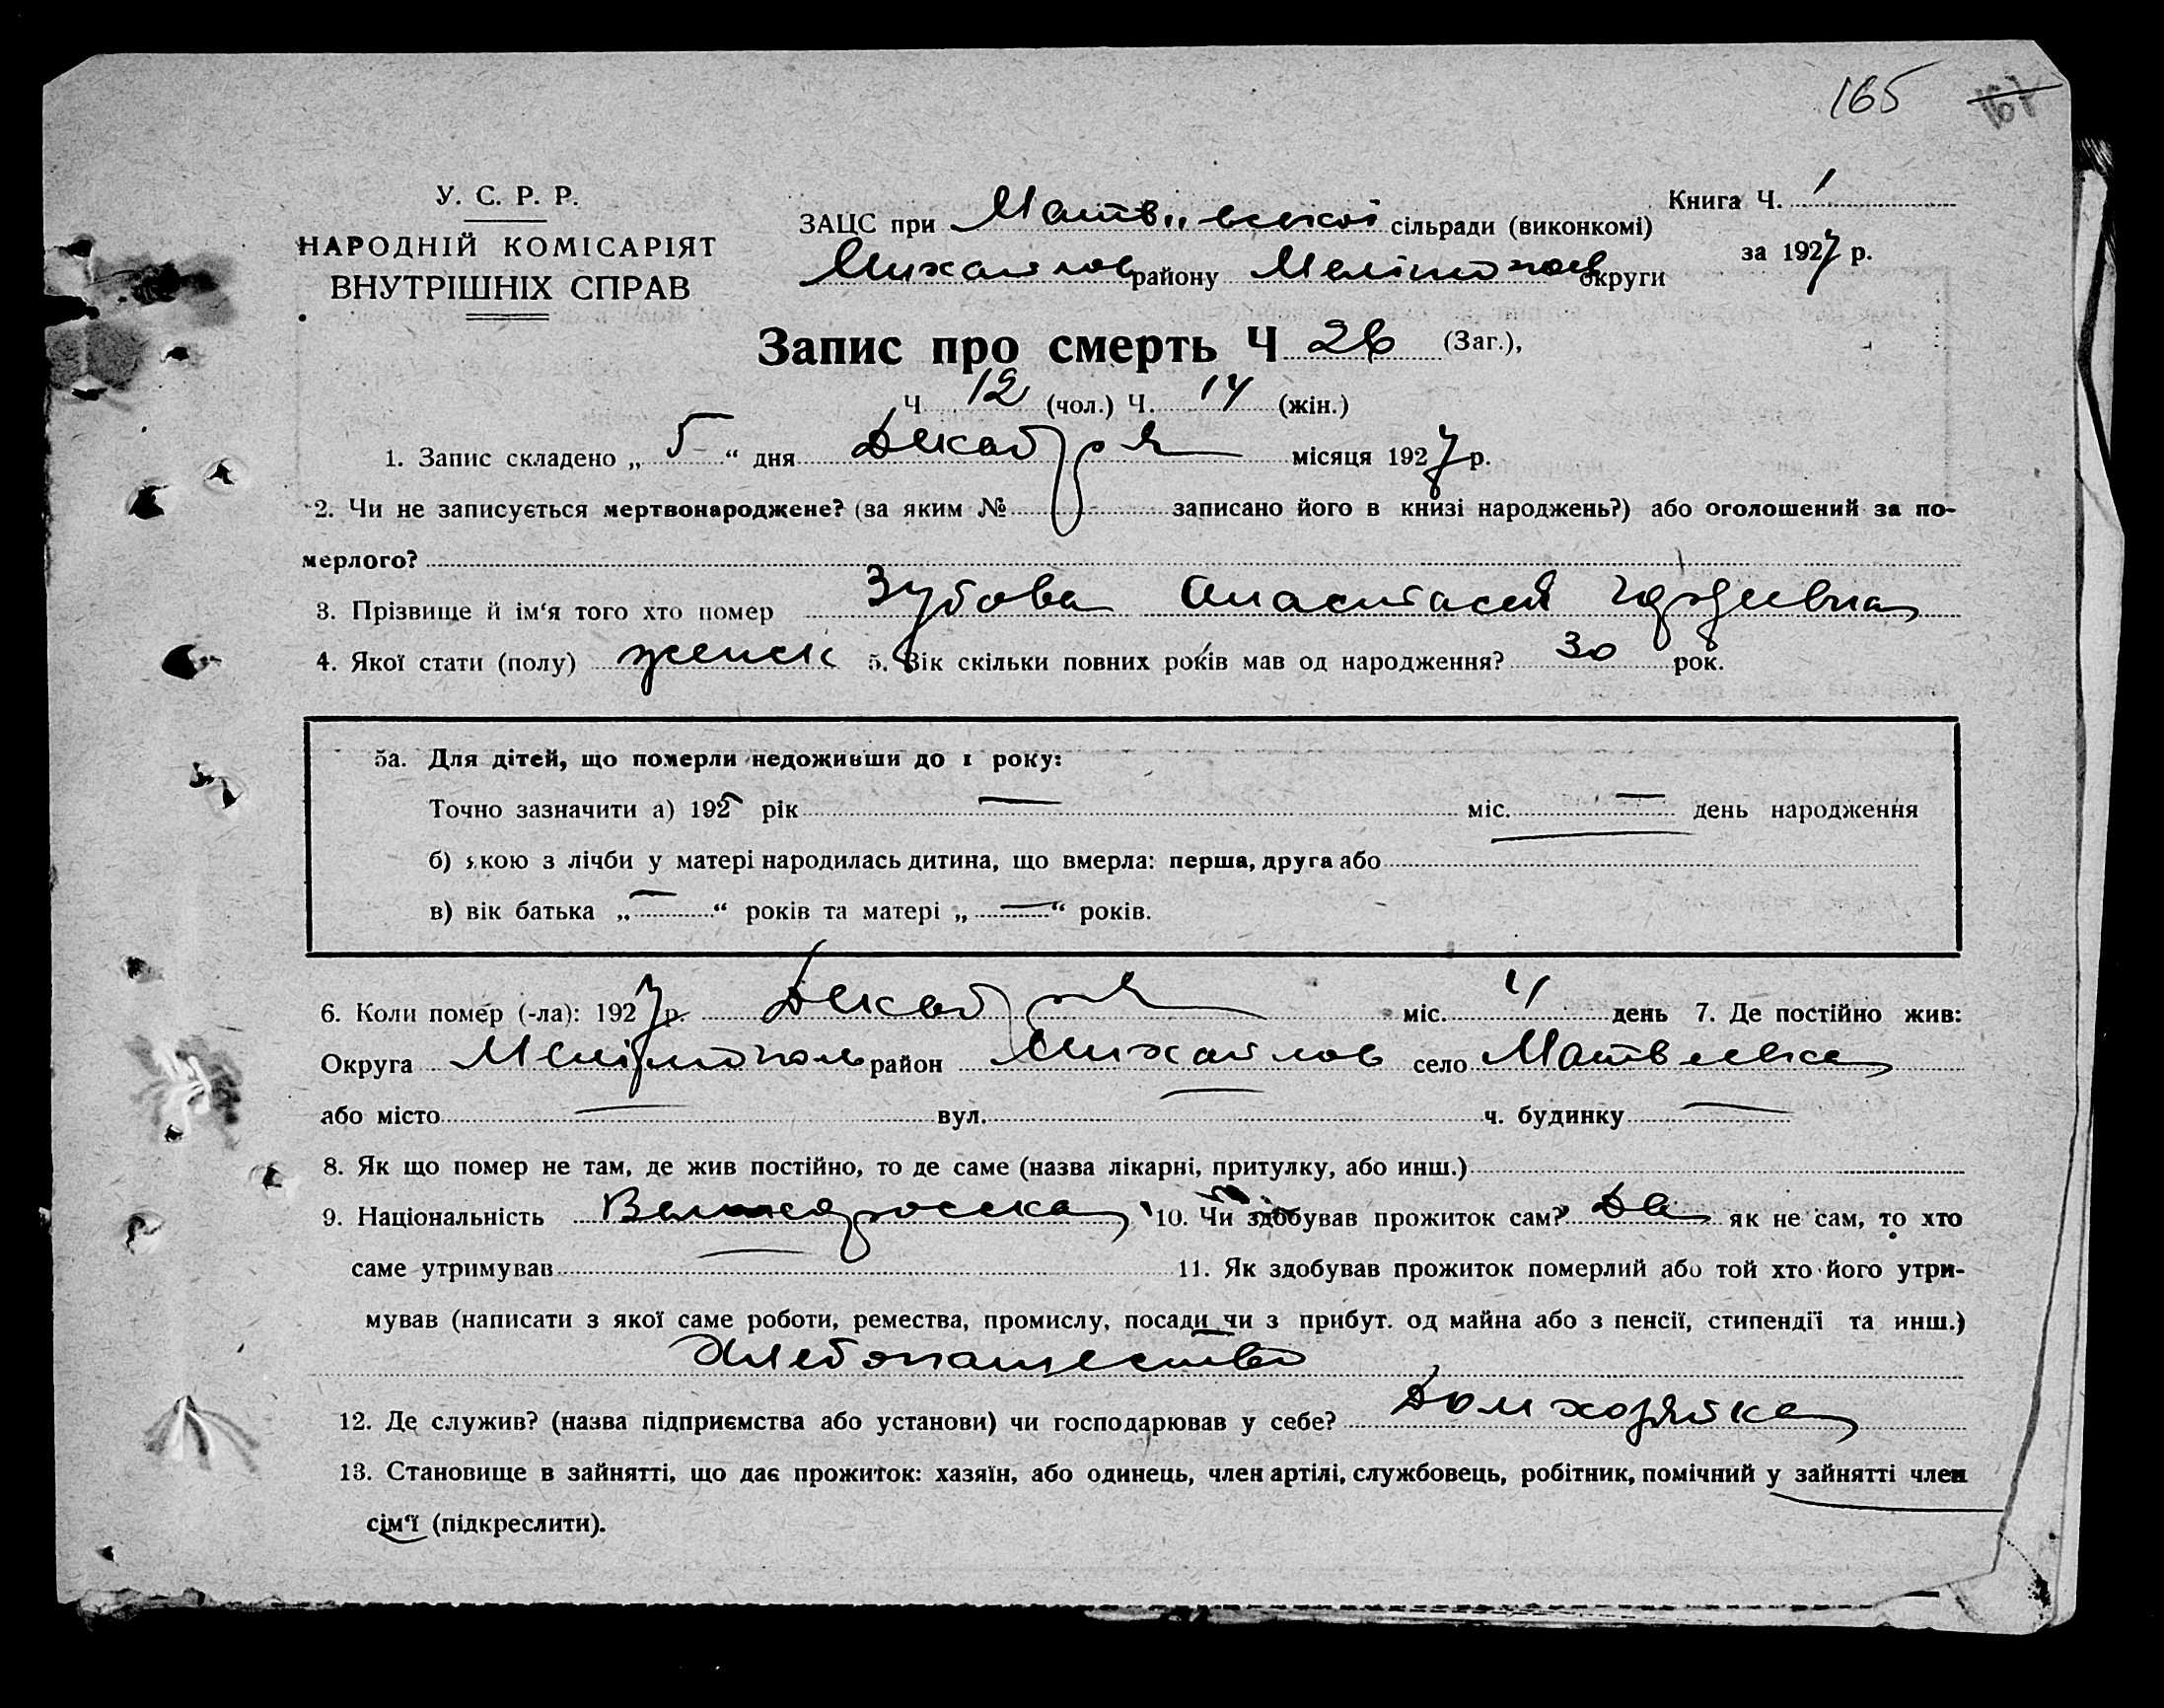 165 167
У. С. Р. Р.
НАРОДНІЙ КОМІСАРІЯТ
ВНУТРІШНІХ СПРАВ
ЗАЦС при Матвіївській сільради (виконкомі)
Михайлов району Мелітопол округи
Книга Ч. 1
за 1927 р.
Запис про смерть Ч 26 (Заг.),
Ч 12 (чол.) Ч. 14 (жін.)
1. Запис складено „ 5 “ дня Декабря місяця 1927 р.
2. Чи не записується мертвонароджене? (за яким № записано його в книзі народжень?) або оголошений за по-
мерлого?
3. Прізвище й ім‘я того хто помер Зубова Анастасия
4. Якої стати (полу) женск 5. Вік скільки повних років мав од народження? 30 рок.
5а. Для дітей, що померли недоживши до 1 року:
Точно зазначити а) 192 рік — міс. — день народження
б) якою з лічби у матері народилась дитина, що вмерла: перша, друга або
в) вік батька „ — “ років та матері „ — “ років.
6. Коли помер (-ла): 1927 р. Декабря міс. 4 день 7. Де постійно жив:
Округа Мелітополь район Михайлов село Матвеевка
або місто — вул. — ч. будинку —
8. Як що помер не там, де жив постійно, то де саме (назва лікарні, притулку, або инш.)
9. Національність Великоросска 10. Чи здобував прожиток сам? Да як не сам, то хто
саме утримував — 11. Як здобував прожиток померлий або той хто його утри-
мував (написати з якої саме роботи, ремества, промислу, посади чи з прибут. од майна або з пенсії, стипендії та инш.)
Хлебопашество
12. Де служив? (назва підприємства або установи) чи господарював у себе? Домхозяйка
13. Становище в зайнятті, що дає прожиток: хазяїн, або одинець, член артілі, службовець, робітник, помічний у зайнятті член
сім‘ї (підкреслити).